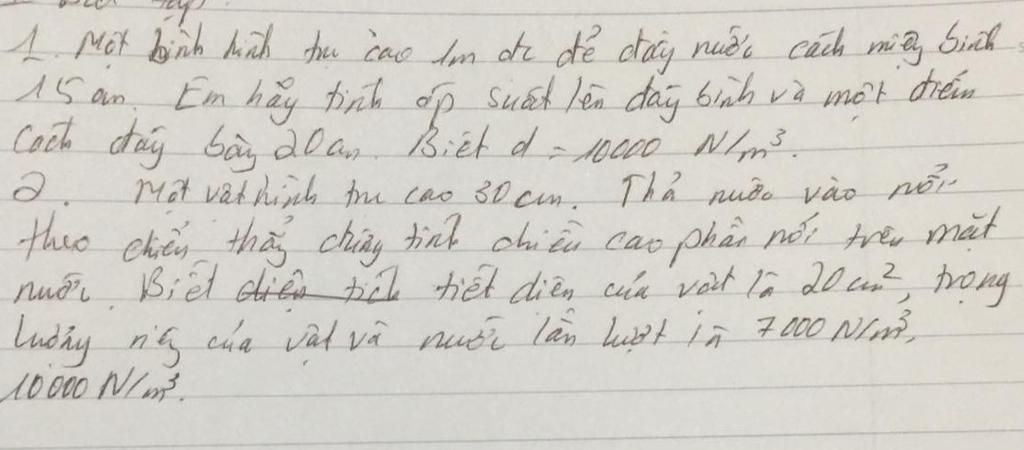 1. Một bình hình trụ cao 1m đc để đầy nước cách miệng bình
15 cm. Em hãy tính áp suất lên đáy bình và một điểm
cách đáy bình 20cm. Biết d = 10000 N/m³.
2. Một vật hình trụ cao 30 cm. Thả nước vào nổi
theo chiều thẳng tính chiều cao phần nổi trên mặt
nước. Biết diện tích tiết diện của vật là 20 cm², trọng
lượng riêng của vật và nước lần lượt là 7000 N/m³,
10000 N/m³.